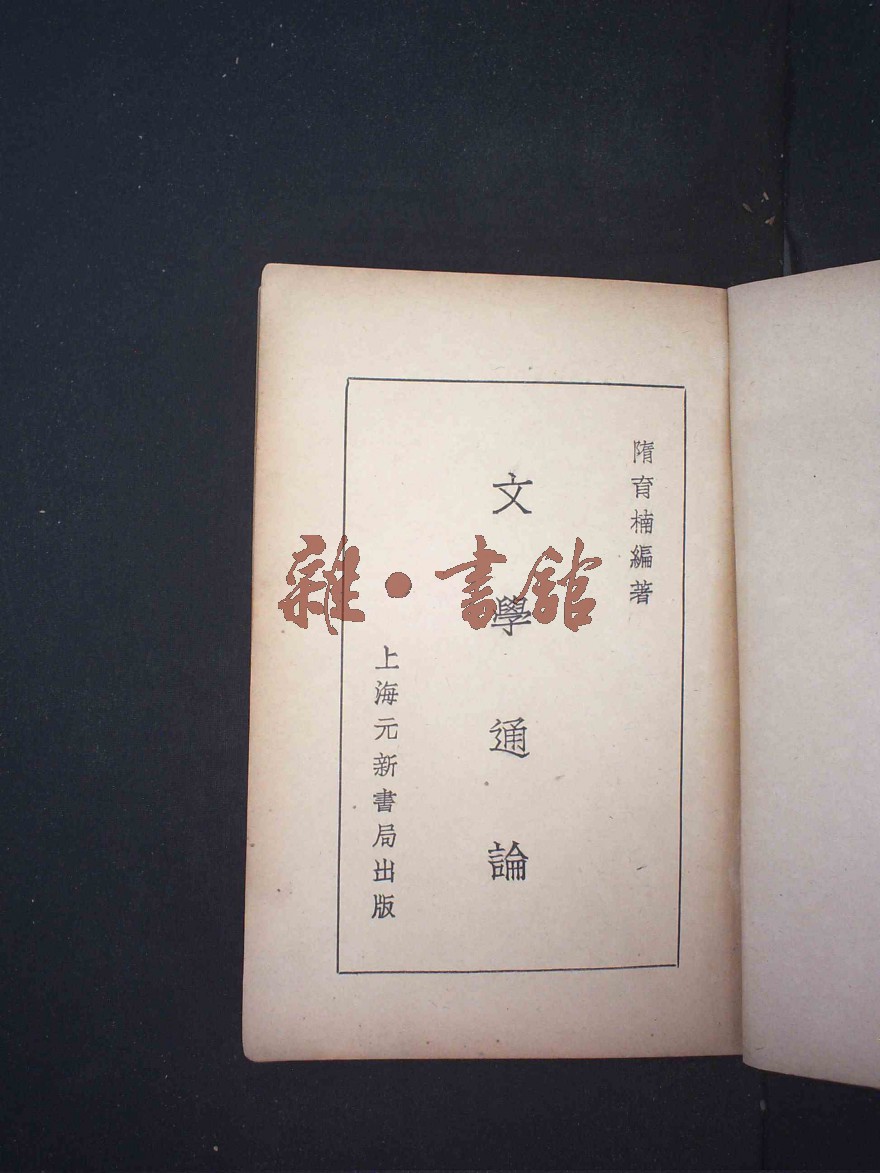 隋育楠編著
文學通論
上海元新書局出版
雜·書館